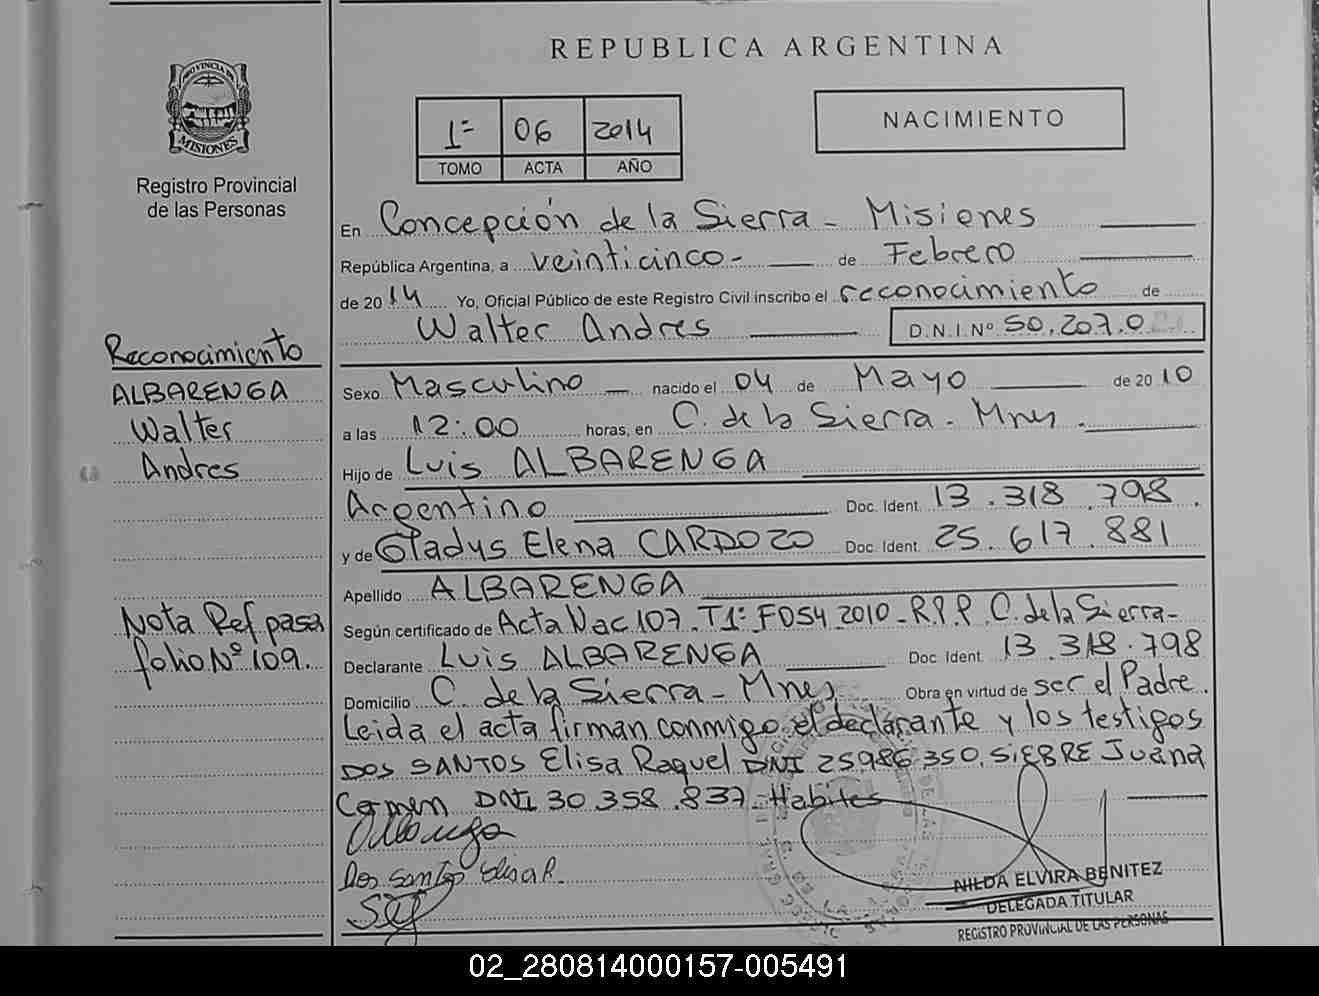 REPUBLICA ARGENTINA
PROVINCIA DE
MISIONES
Registro Provincial
de las Personas
1ª 06 2014
TOMO ACTA AÑO
NACIMIENTO
En Concepción de la Sierra - Misiones
República Argentina, a veinticinco - de Febrero
de 2014 Yo, Oficial Público de este Registro Civil inscribo el reconocimiento de
Walter Andres D.N.I.Nº 50.207.0
Reconocimiento
ALBARENGA
Walter
Andres
Nota Ref pasa
folio Nº 109.
Sexo Masculino nacido el 04 de Mayo de 2010
a las 12:00 horas, en C. de la Sierra - Mnes.
Hijo de Luis ALBARENGA
Argentino Doc. Ident. 13.318.798.
y de Gladys Elena CARDOZO Doc. Ident. 25.617.881
Apellido ALBARENGA
Según certificado de Acta Nac 107. T1ª F054 2010 - R.P.P. C. de la Sierra -
Declarante Luis ALBARENGA Doc. Ident. 13.318.798
Domicilio C. de la Sierra - Mnes Obra en virtud de ser el Padre.
Leida el acta firman conmigo el declarante y los testigos
DOS SANTOS Elisa Raquel DNI 25986350, SIEBRE Juana
Carmen DNI 30 358.837 - Habiles
Dos Santos Elisa R.
NILDA ELVIRA BENITEZ
DELEGADA TITULAR
REGISTRO PROVINCIAL DE LAS PERSONAS
02_280814000157-005491